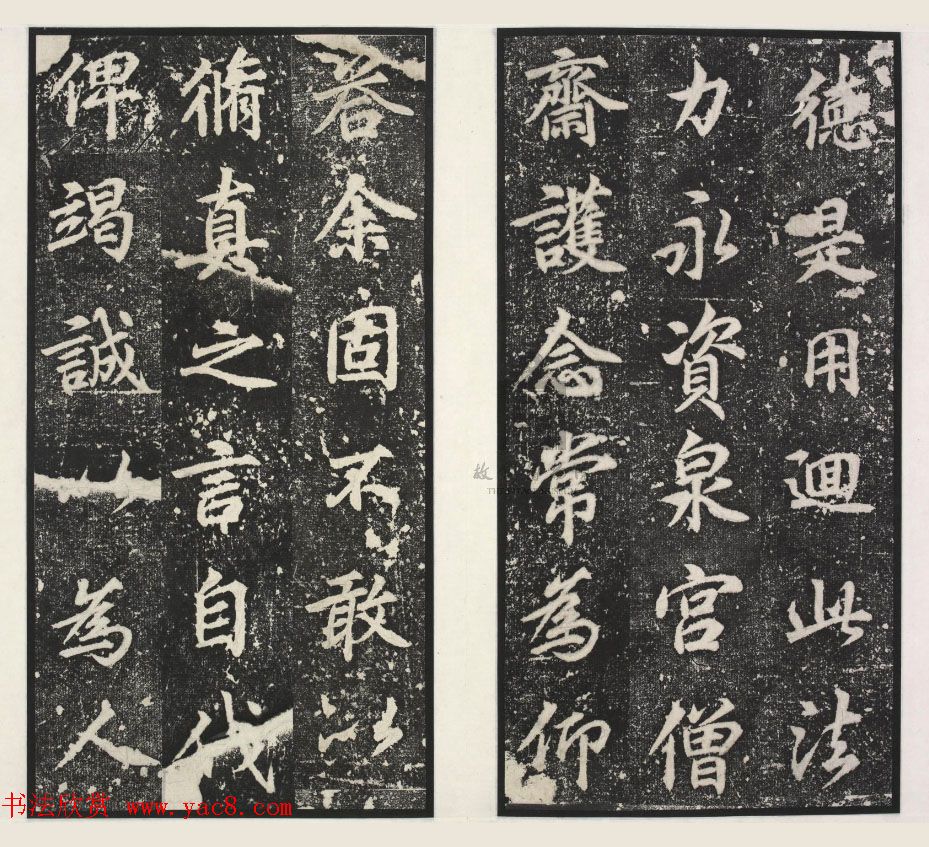 德是用迴此法
力永資泉宮僧
齋護念常為仰
荅余固不敢以
脩真之言自伐
俾竭誠以為人
书法欣赏 www.yac8.com
故